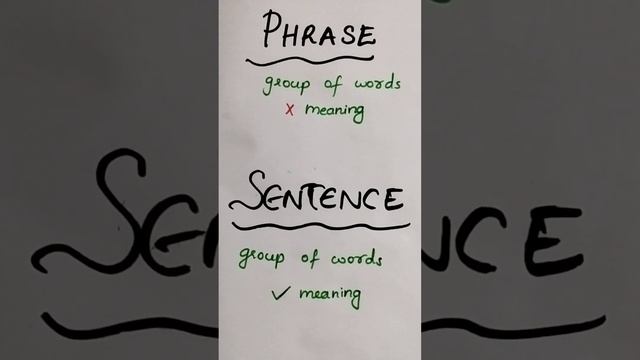 PHRASE
group of words
x meaning
SENTENCE
group of words
✓ meaning